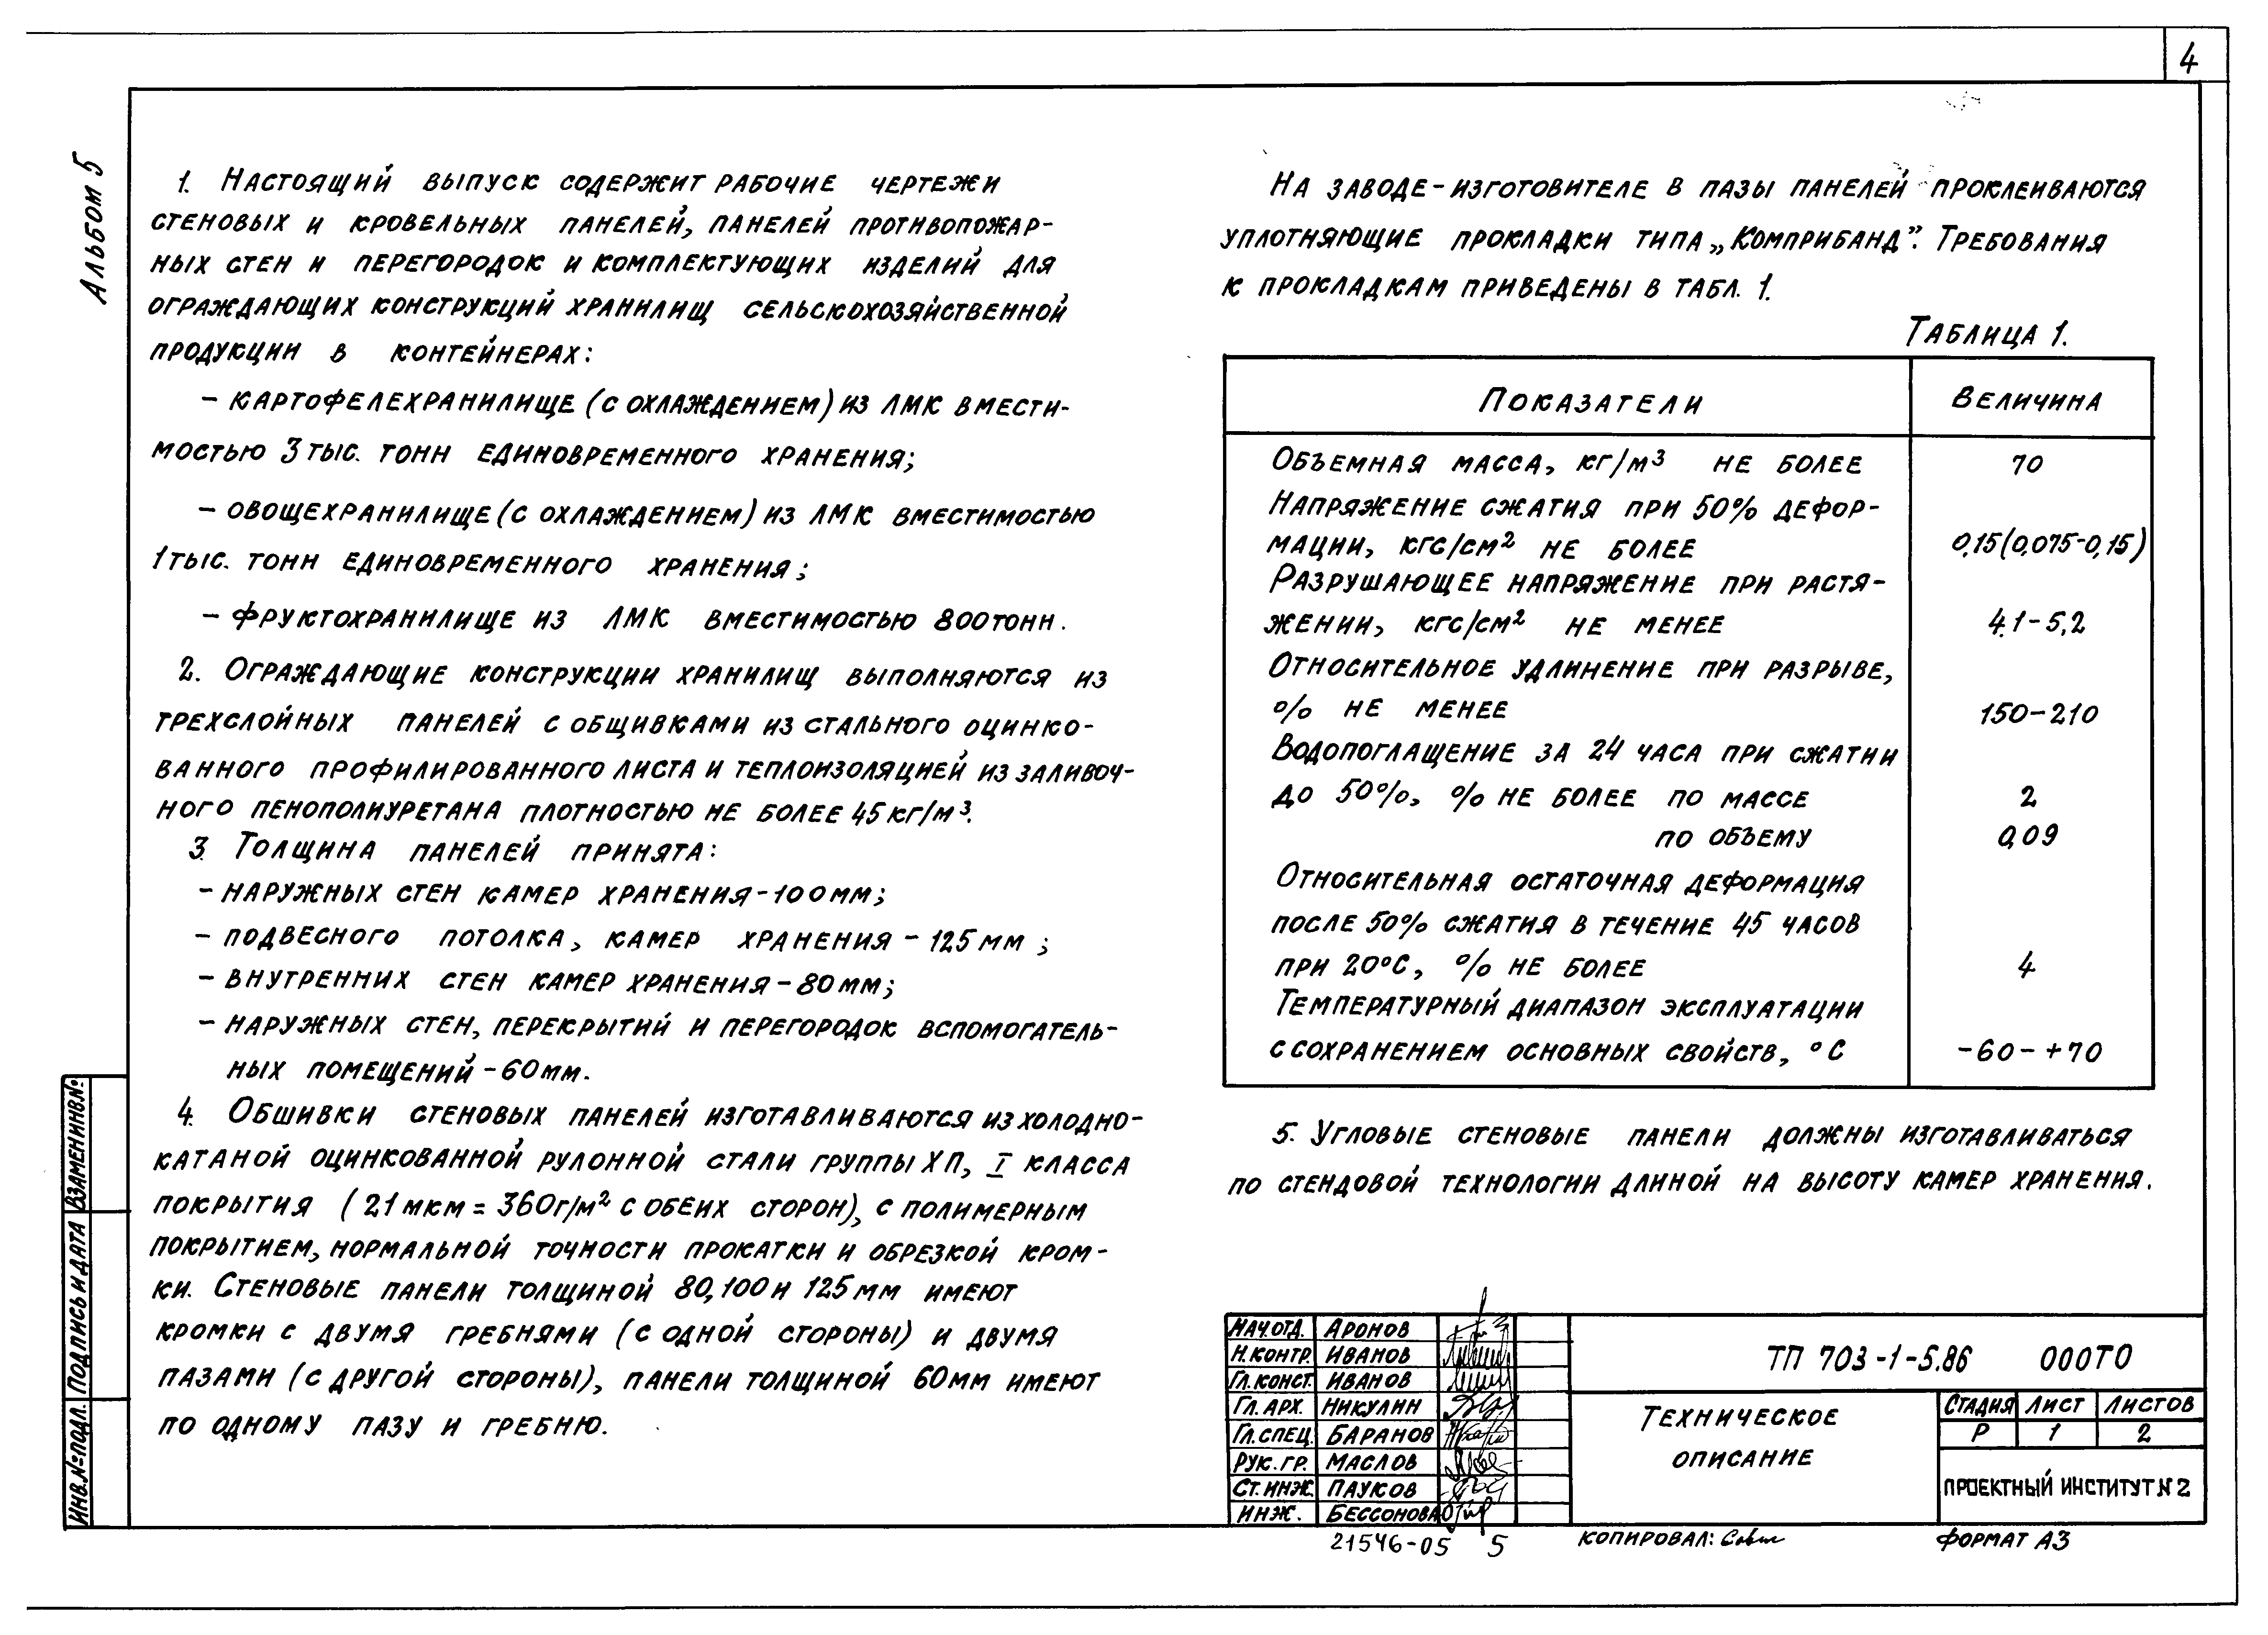 4
Альбом 5
1. Настоящий выпуск содержит рабочие чертежи
стеновых и кровельных панелей, панелей противопожар-
ных стен и перегородок и комплектующих изделий для
ограждающих конструкций хранилищ сельскохозяйственной
продукции в контейнерах:
- картофелехранилище (с охлаждением) из ЛМК вмести-
мостью 3 тыс. тонн единовременного хранения;
- овощехранилище (с охлаждением) из ЛМК вместимостью
1 тыс. тонн единовременного хранения;
- фруктохранилище из ЛМК вместимостью 800 тонн.
2. Ограждающие конструкции хранилищ выполняются из
трехслойных панелей с общивками из стального оцинко-
ванного профилированного листа и теплоизоляцией из заливоч-
ного пенополиуретана плотностью не более 45 кг/м³.
3. Толщина панелей принята:
- наружных стен камер хранения - 100 мм;
- подвесного потолка, камер хранения - 125 мм;
- внутренних стен камер хранения - 80 мм;
- наружных стен, перекрытий и перегородок вспомогатель-
ных помещений - 60 мм.
4. Обшивки стеновых панелей изготавливаются из холодно-
катаной оцинкованной рулонной стали группы ХП, I класса
покрытия (21 мкм = 360 г/м² с обеих сторон), с полимерным
покрытием, нормальной точности прокатки и обрезкой кром-
ки. Стеновые панели толщиной 80, 100 и 125 мм имеют
кромки с двумя гребнями (с одной стороны) и двумя
пазами (с другой стороны), панели толщиной 60 мм имеют
по одному пазу и гребню.
На заводе-изготовителе в пазы панелей проклеиваются
уплотняющие прокладки типа „Комприбанд”. Требования
к прокладкам приведены в табл. 1.
Таблица 1.
Показатели Величина
Объемная масса, кг/м³ не более 70
Напряжение сжатия при 50% дефор-
мации, кгс/см² не более 0,15(0,075-0,15)
Разрушающее напряжение при растя-
жении, кгс/см² не менее 4,1-5,2
Относительное удлинение при разрыве,
% не менее 150-210
Водопоглащение за 24 часа при сжатии
до 50%, % не более по массе 2
по объему 0,09
Относительная остаточная деформация
после 50% сжатия в течение 45 часов
при 20°С, % не более 4
Температурный диапазон эксплуатации
с сохранением основных свойств, °С -60-+70
5. Угловые стеновые панели должны изготавливаться
по стендовой технологии длиной на высоту камер хранения.
Взамен инв.№
Подпись и дата
Инв.№ подл.
Нач.отд. Аронов
Н.контр. Иванов
Гл.конст. Иванов
Гл.арх. Никулин
Гл.спец. Баранов
Рук.гр. Маслов
Ст.инж. Пауков
Инж. Бессонова
ТП 703-1-5.86 000ТО
Техническое
описание
Стадия Лист Листов
Р 1 2
Проектный институт №2
21546-05 5
Копировал:
Формат А3